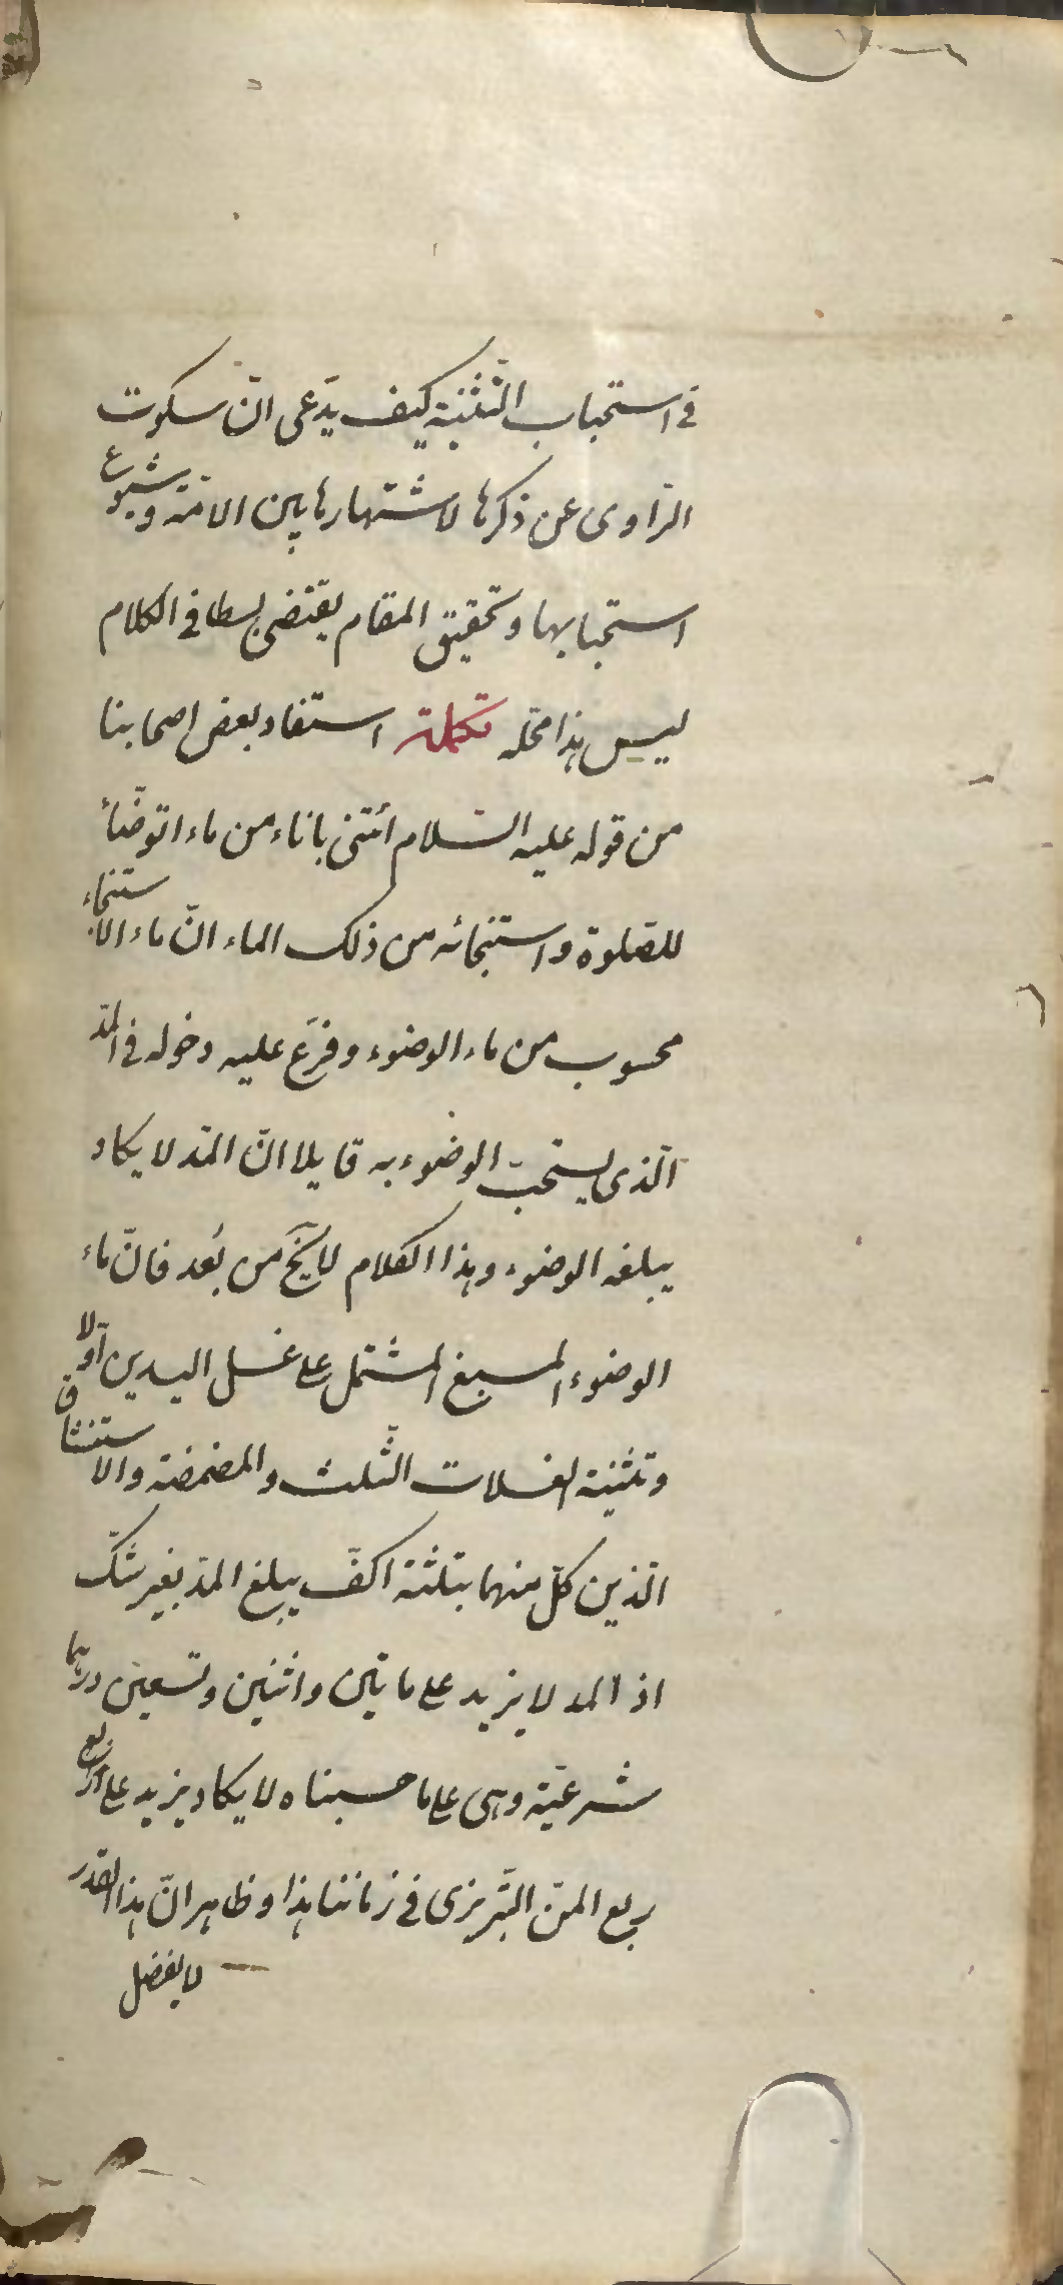 في استحباب التّثنية كيف يدّعى انّ سكوت
الرّاوى عن ذكرها لاشتهارها بين الامّة وشيوع
استحبابها وتحقيق المقام يقتضى بسطا في الكلام
ليس هذا محلّه تكملة استفاد بعض اصحابنا
من قوله عليه السّلام ائتنى باناء من ماء اتوضّأ
للصّلوة واستنجائه من ذلك الماء انّ ماء الاستنجاء
محسوب من ماء الوضوء وفرّع عليه دخوله في المدّ
الّذى يستحبّ الوضوء به قايلا انّ المدّ لا يكاد
يبلغه الوضوء وهذا الكلام لا يخ من بُعد فانّ ماء
الوضوء المسبغ المشتمل على غسل اليدين اوّلا
وتثنية الغسلات الثّلث والمضمضة والاستنشاق
الّذين كلّ منهما بثلثة اكفّ يبلغ المدّ بغير شكّ
اذ المد لا يزيد على ماتين واثنين وتسعين درهما
شرعيّة وهى على ما حسبناه لا يكاد يزيد على
ربع المنّ التّبريزى في زماننا هذا وظاهر انّ هذا القدر
لا يفضل